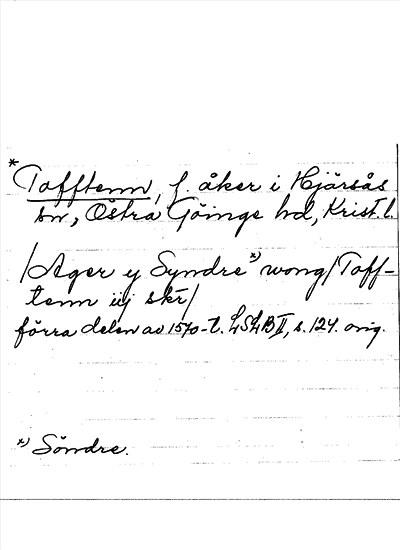 * Tofftenn, f. åker i Hjärsås
sn, Östra Göinge hd, Krist. l.
/Ager y Syndre *) wong/ Toff-
tenn iij skr/
förra delen av 1570-t. LSLB II, s. 124. orig.
*) Söndre.